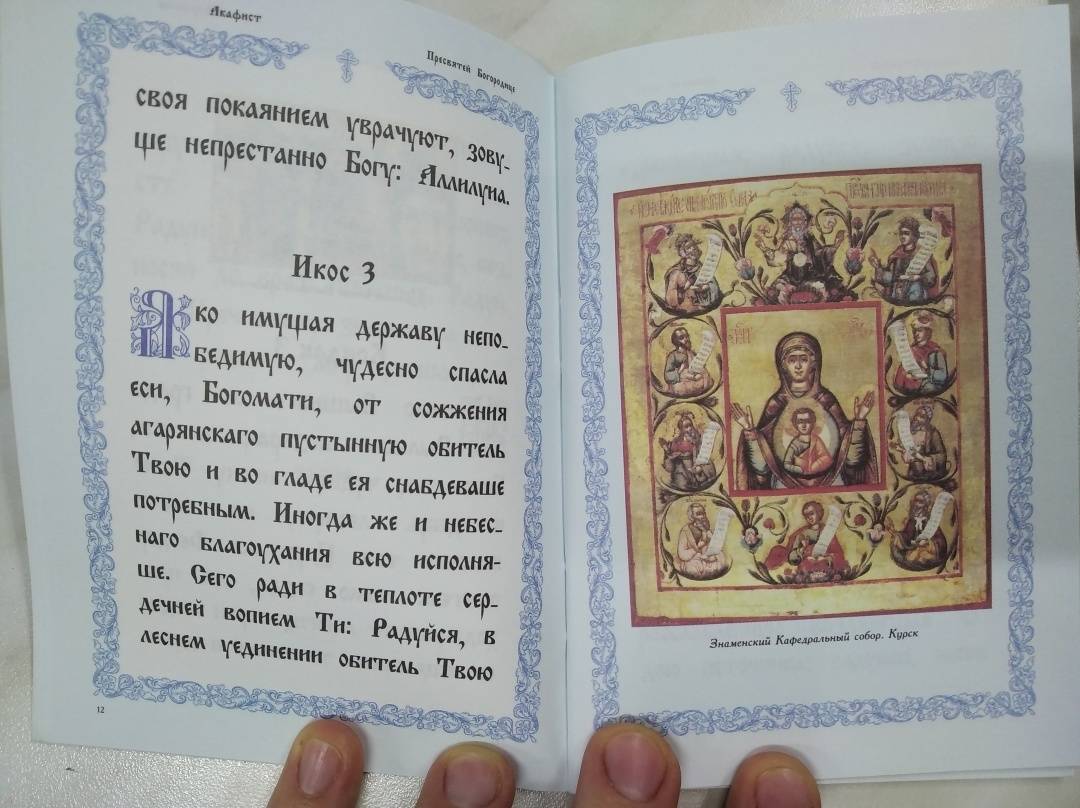 Акафист
Пресвятей Богородице
своя покаянием уврачуют, зову-
ще непрестанно Богу: Аллилуиа.
Икос 3
Яко имущая державу непо-
бедимую, чудесно спасла
еси, Богомати, от сожжения
агарянскаго пустынную обитель
Твою и во гладе ея снабдеваше
потребным. Иногда же и небес-
наго благоухания всю исполня-
ше. Сего ради в теплоте сер-
дечней вопием Ти: Радуйся, в
леснем уединении обитель Твою
12
Знаменский Кафедральный собор. Курск